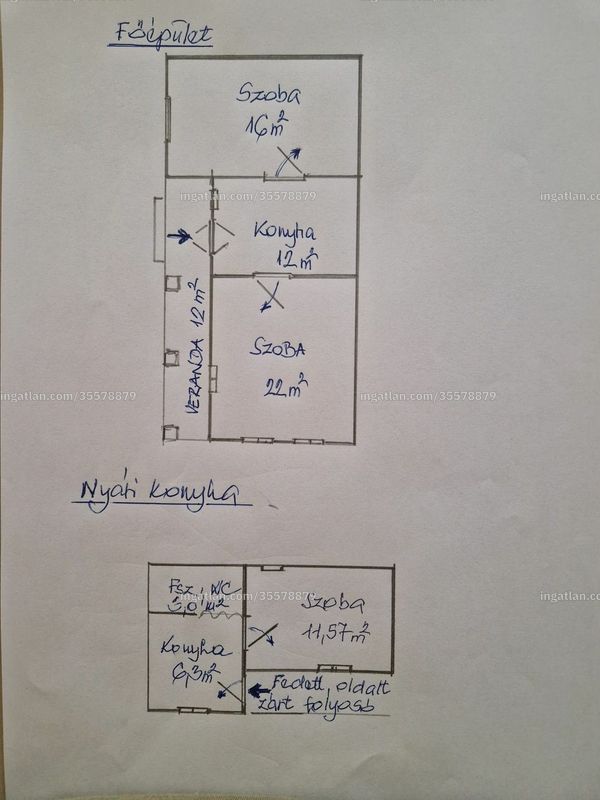 Főépület
Szoba
16 m²
ingatlan.com/35578879
ingatlan.com/35578879
Konyha
12 m²
VERANDA 12 m²
SZOBA
22 m²
ingatlan.com/35578879
ingatlan.com/35578879
Nyári konyha
Fsz, WC
3,0 m²
Szoba
11,57 m²
ingatlan.com/35578879
ingatlan.com/35578879
Konyha
6,3 m²
Fedett, oldalt
zárt folyosó